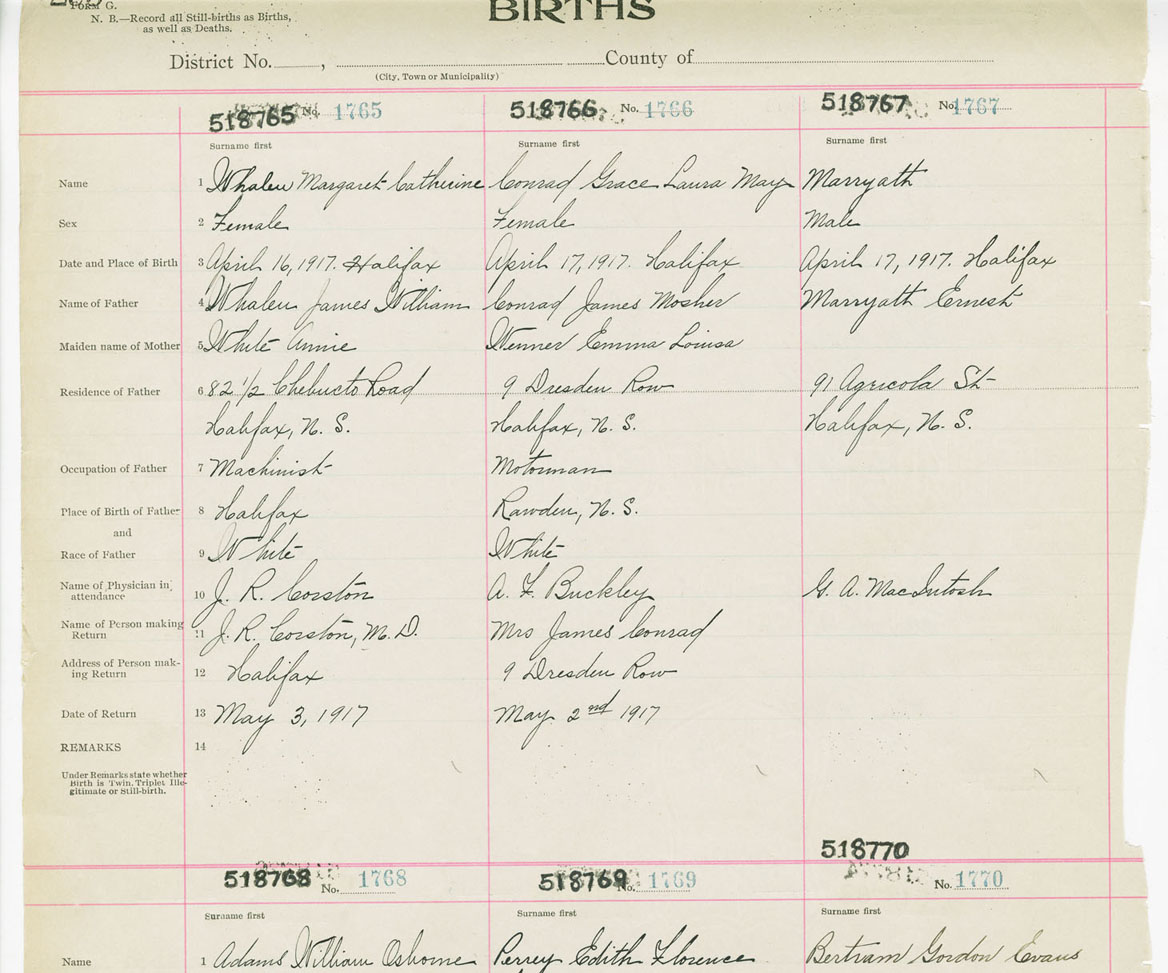 FORM G.
N. B.—Record all Still-births as Births,
as well as Deaths.
BIRTHS
District No. , County of
(City, Town or Municipality)
518765 No. 1765 518766 No. 1766 518767 No. 1767
Surname first Surname first Surname first
Name 1 Whalen Margaret Catherine Conrad Grace Laura May Marryath
Sex 2 Female Female Male
Date and Place of Birth 3 April 16, 1917. Halifax April 17, 1917. Halifax April 17, 1917. Halifax
Name of Father 4 Whalen James William Conrad James Mosher Marryath Ernest
Maiden name of Mother 5 White Annie Wenner Emma Louisa
Residence of Father 6 82 1/2 Chebucto Road 9 Dresden Row 91 Agricola St
Halifax, N. S. Halifax, N. S. Halifax, N. S.
Occupation of Father 7 Machinist Motorman
Place of Birth of Father 8 Halifax Rawden, N. S.
and
Race of Father 9 White White
Name of Physician in
attendance 10 J. R. Corston A. F. Buckley G. A. MacIntosh
Name of Person making
Return 11 J. R. Corston, M. D. Mrs James Conrad
Address of Person mak-
ing Return 12 Halifax 9 Dresden Row
Date of Return 13 May 3, 1917 May 2nd 1917
REMARKS 14
Under Remarks state whether
Birth is Twin, Triplet Ille-
gitimate or Still-birth.
518768 No. 1768 518769 No. 1769 518770 No. 1770
Surname first Surname first Surname first
Name 1 Adams William Osborne Perrey Edith Florence Bertram Gordon Evans